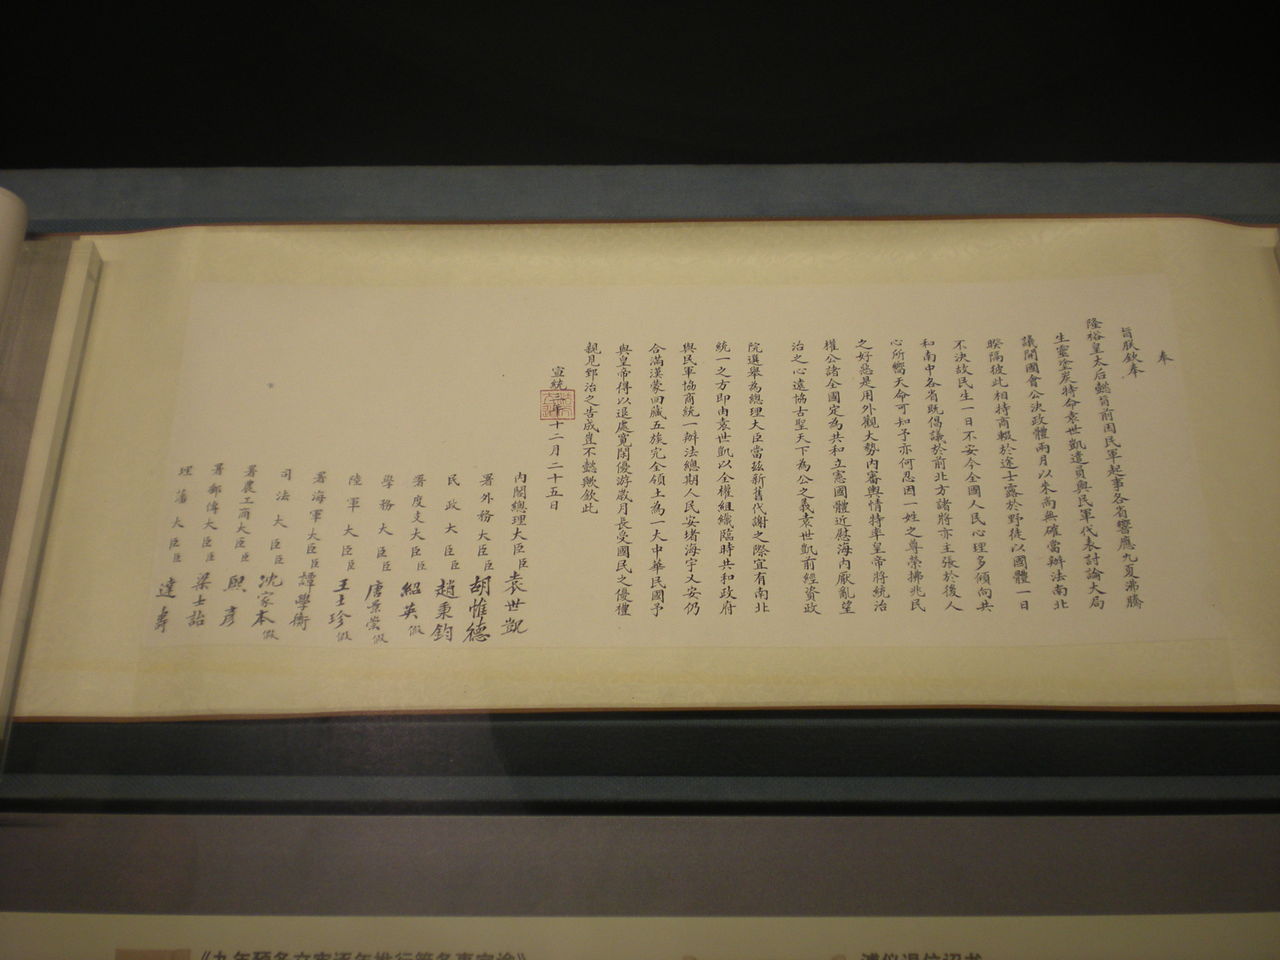 奉
旨朕欽奉
隆裕皇太后懿旨前因民軍起事各省響應九夏沸騰
生靈塗炭特命袁世凱遣員與民軍代表討論大局
議開國會公決政體兩月以來尚無確當辦法南北
暌隔彼此相持商輟於途士露於野徒以國體一日
不決故民生一日不安今全國人民心理多傾向共
和南中各省既倡議於前北方諸將亦主張於後人
心所嚮天命可知予亦何忍因一姓之尊榮拂兆民
之好惡是用外觀大勢內審輿情特率皇帝將統治
權公諸全國定為共和立憲國體近慰海內厭亂望
治之心遠協古聖天下為公之義袁世凱前經資政
院選舉為總理大臣當茲新舊代謝之際宜有南北
統一之方即由袁世凱以全權組織臨時共和政府
與民軍協商統一辦法總期人民安堵海宇乂安仍
合滿漢蒙回藏五族完全領土為一大中華民國予
與皇帝得以退處寬閒優游歲月長受國民之優禮
親見郅治之告成豈不懿歟欽此
宣統三年十二月二十五日
內閣總理大臣臣袁世凱
署外務大臣臣胡惟德
民政大臣臣趙秉鈞
署度支大臣臣紹英假
學務大臣臣唐景崇假
陸軍大臣臣王士珍假
署海軍大臣臣譚學衡
司法大臣臣沈家本假
署農工商大臣臣熙彥
署郵傳大臣臣梁士詒
理藩大臣臣達壽
《九年预备立宪逐年推行筹备事宜谕》
溥仪退位诏书